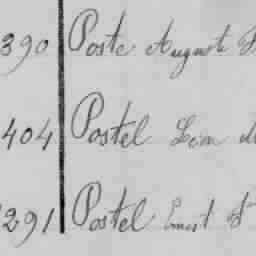 390 Poste Auguste
404 Postel Léon
291 Postel Ernest